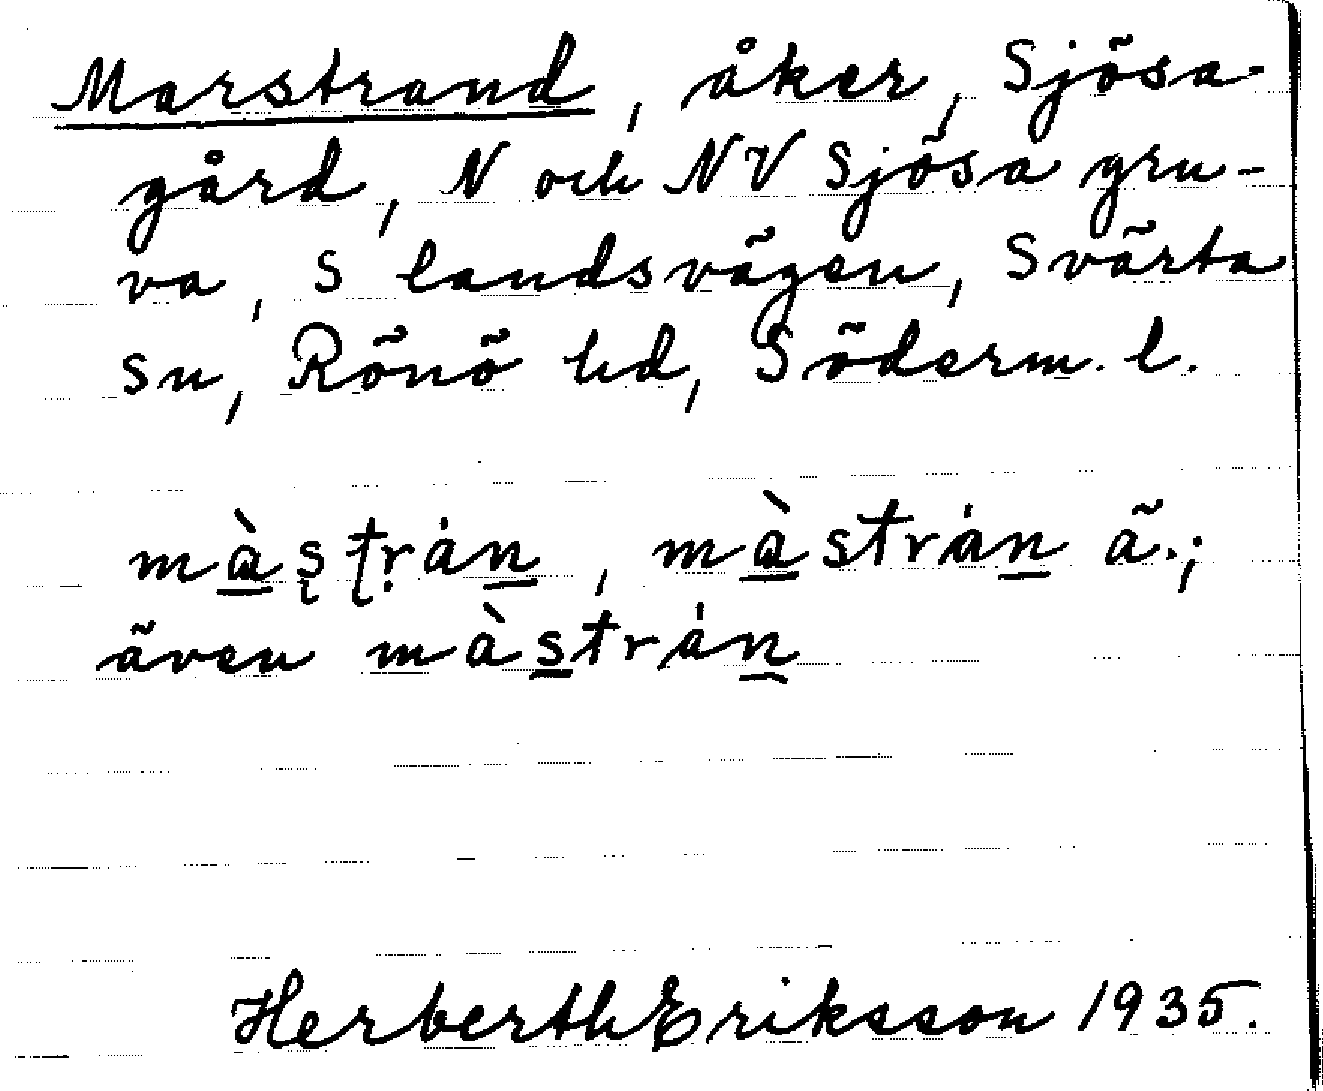 Marstrand, åker, Sjösa-
gård, N och NV Sjösa gru-
va, S landsvägen, Svärta
sn, Rönö hd, Söderm. l.
mà̲ş ʈṛȧn̲, mà̲strȧn̲ ä.;
även màs̲trȧn̲
Herberth Eriksson 1935.